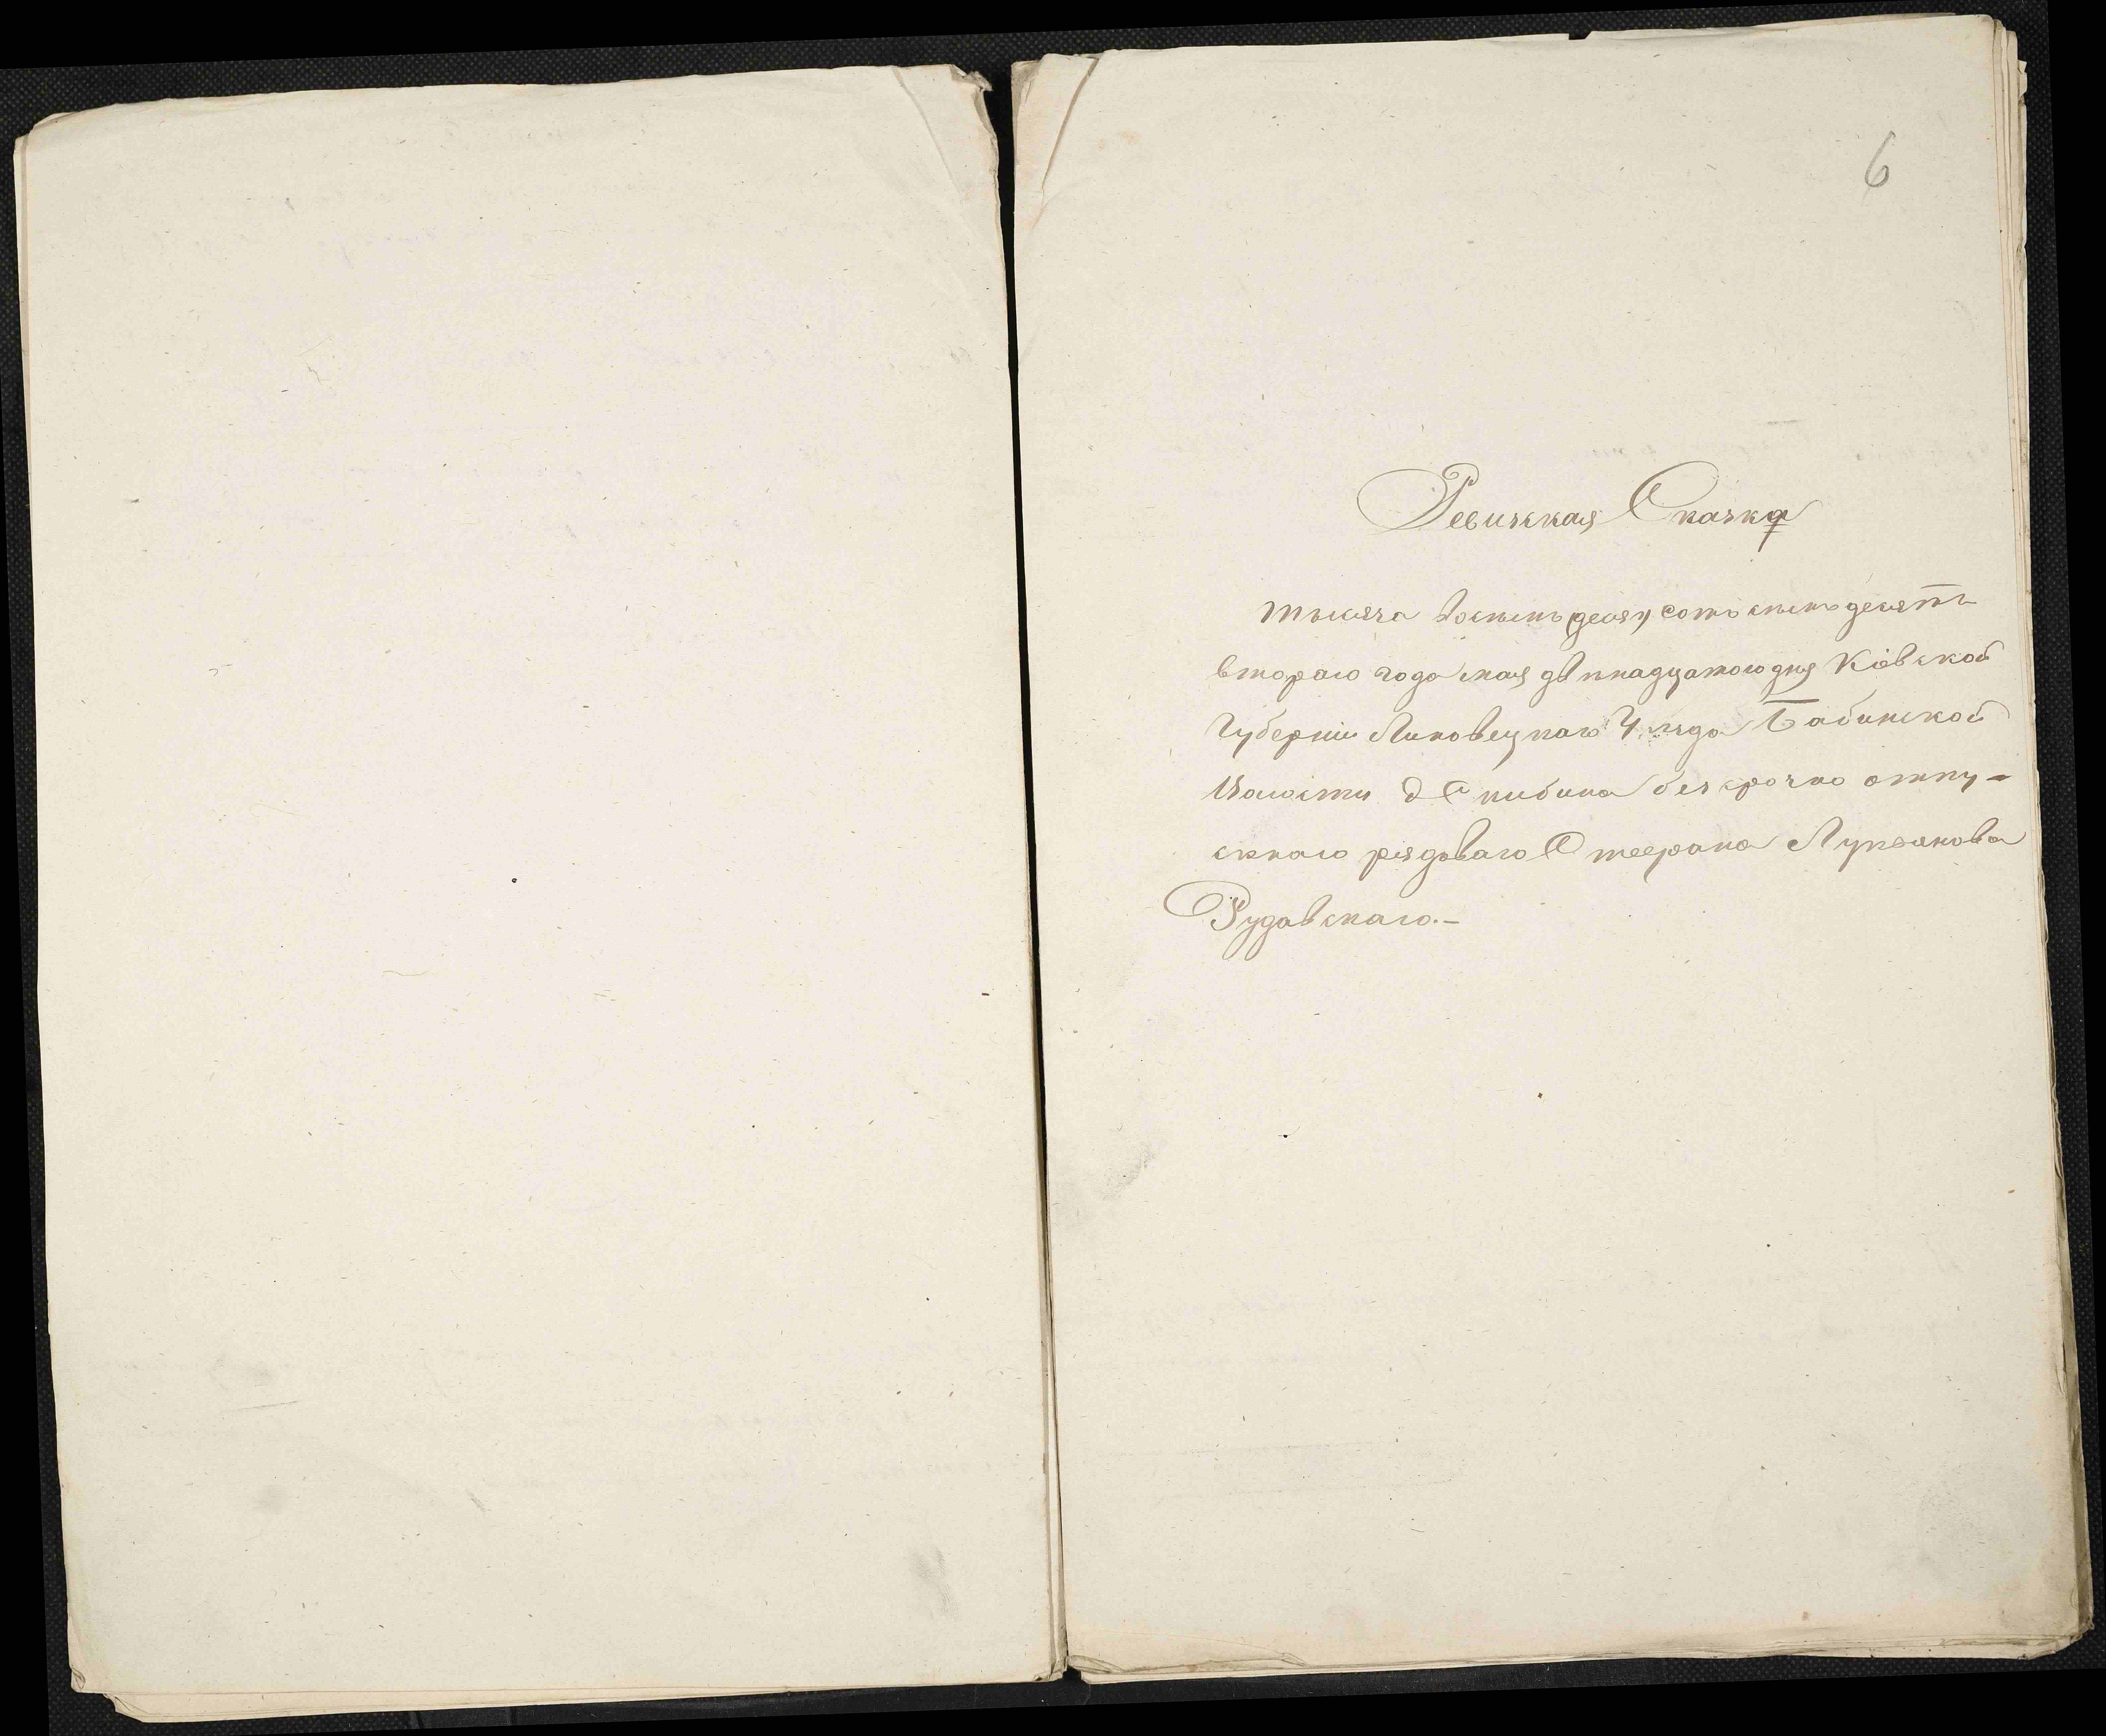 6
Ревизская Сказка
тысяча восемь (деся) сотъ семь десятъ
втораго года мая двпнадцатого дня Кіевской
Губерніи Липовецкаго Уезда Бабинской
Волости д Скибина безсрочно отпу-
скнаго рядоваго Стеерана Лукъянова
Рудавскаго.-